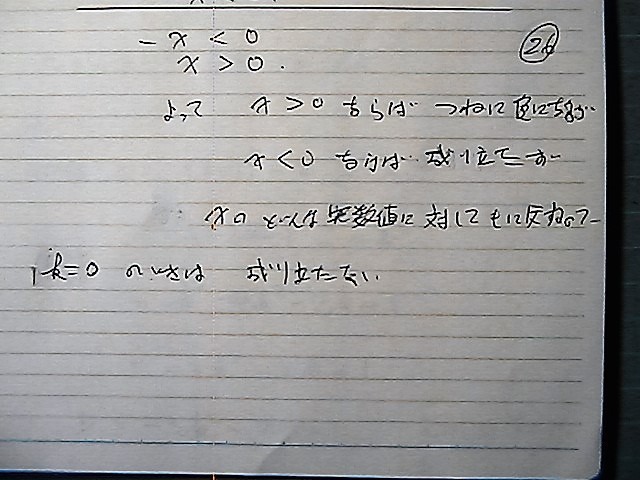 - x < 0 ㉖
x > 0.
よって x > 0 ならば つねに 負になるが
x < 0 ならば 成り立たず
xの どんな 実数値に 対して もに反するので
k = 0 のときは 成り立たない